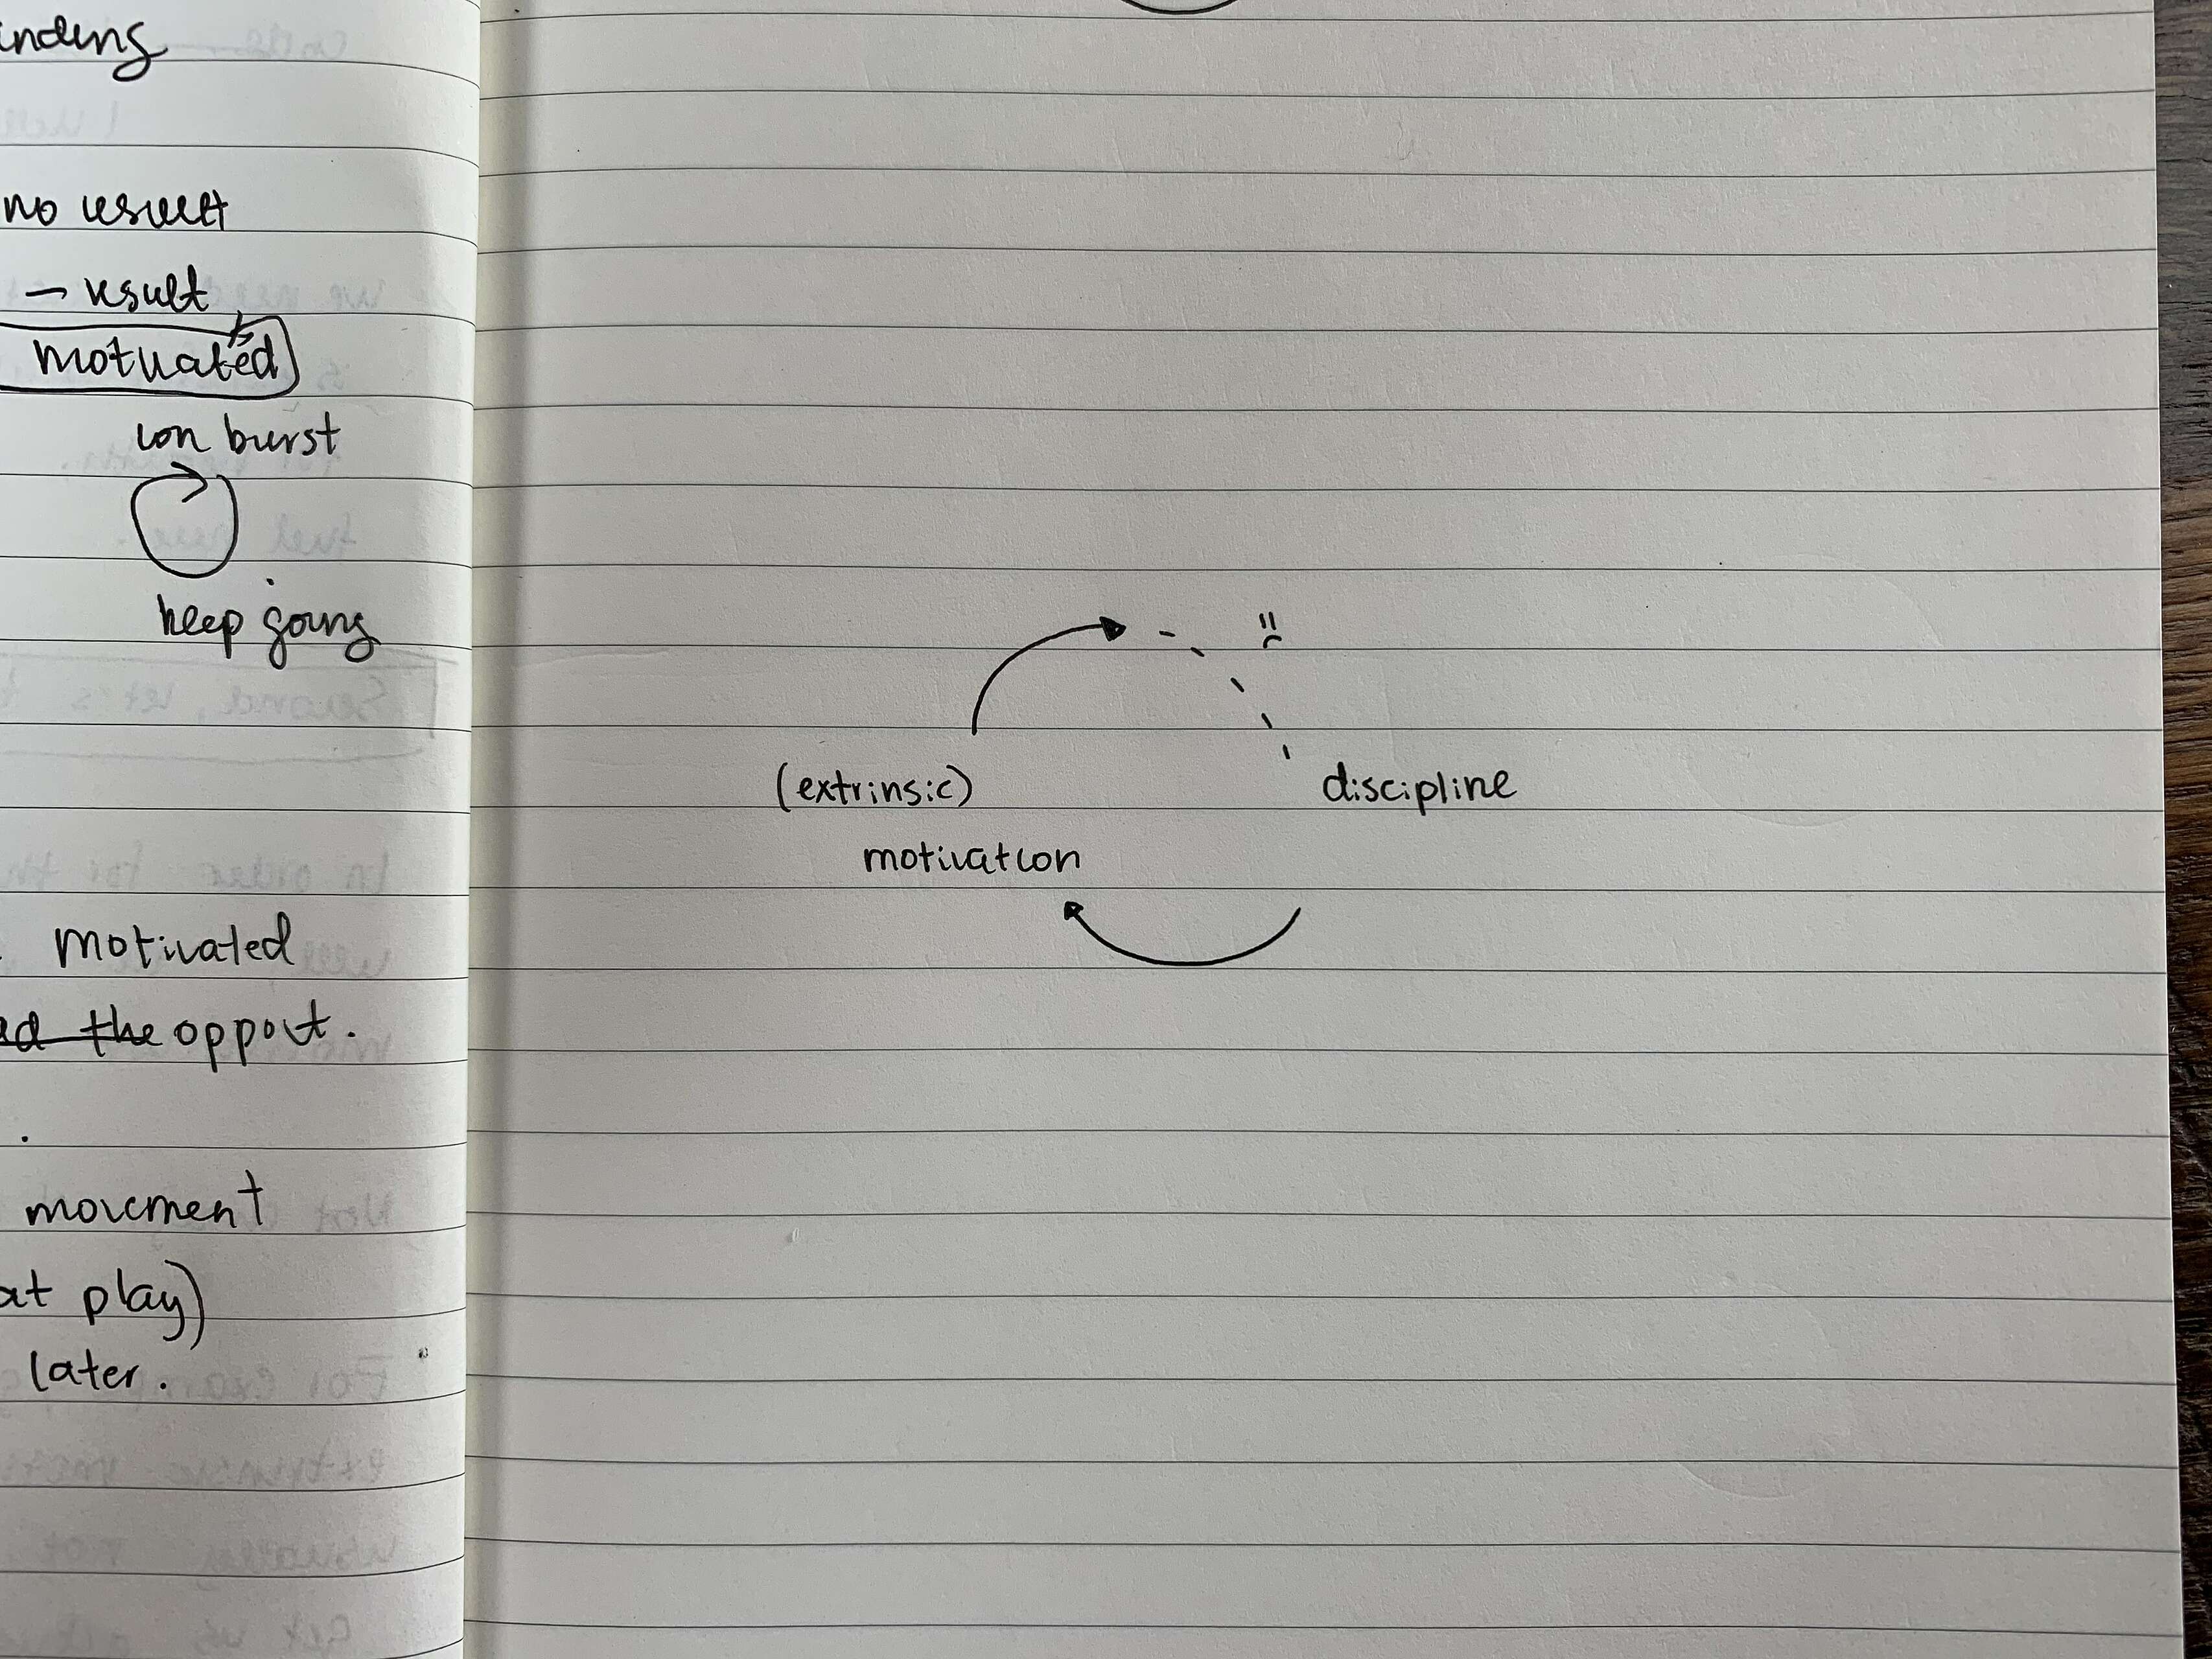 no result
result
motivated
burst
keep going
motivated
the opport.
movement
at play)
later.
(extrinsic)
discipline
motivation